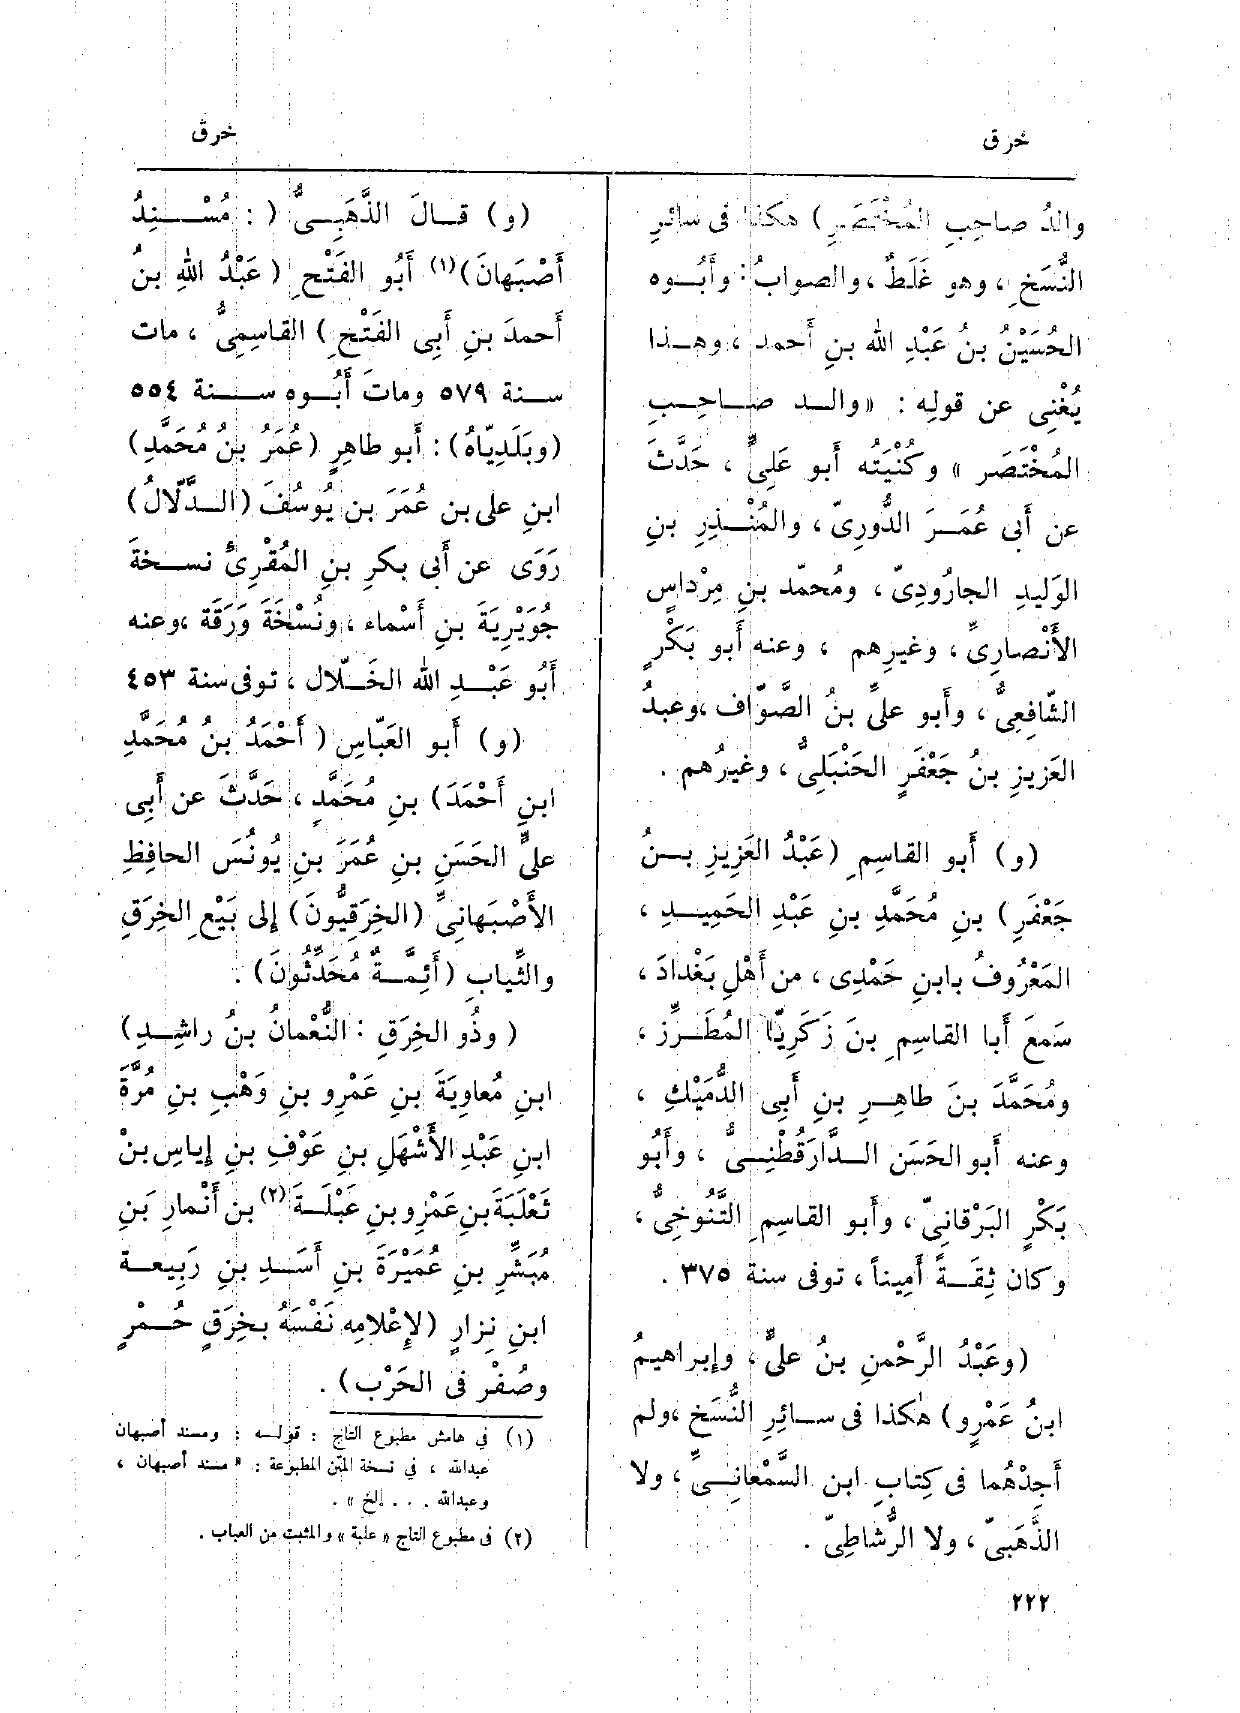 خرق
خرق
والدُ صاحِبِ المُخْتَصَرِ) هكذا فى سائِرِ
النُّسَخِ، وهو غَلَطٌ، والصوابُ: وأَبُوه
الحُسَيْنُ بنُ عَبْدِ الله بنِ أَحمد، وهذا
يُغْنِى عن قولِه: «والد صاحِب
المُخْتَصَر» وكُنْيَتُه أَبو عَلِىٍّ، حَدَّثَ
عن أَبى عُمَرَ الدُّورِىّ، والمُنْذِرِ بنِ
الوَليدِ الجارُودِىّ، ومُحمّد بنِ مِرْداسٍ
الأَنْصارِىِّ، وغيرِهم، وعنه أَبو بَكْرٍ
الشّافِعِىُّ، وأَبو علىِّ بنُ الصَّوّاف، وعبدُ
العَزِيزِ بنُ جَعْفَرٍ الحَنْبَلِىُّ، وغيرُهم.
(و) أَبو القاسِمِ (عَبْدُ العَزِيزِ بنُ
جَعْفَرِ) بنِ مُحَمَّدِ بنِ عَبْدِ الحَمِيدِ،
المَعْرُوفُ بابنِ حَمْدِى، من أَهْلِ بَغْدادَ،
سَمعَ أَبا القاسِمِ بنَ زَكَرِيّا المُطَرِّز،
ومُحَمَّدَ بنَ طاهِرِ بنِ أَبِى الدُّمَيْكِ،
وعنه أَبو الحَسَن الدّارَقُطْنِىُّ، وأَبُو
بَكْرٍ البَرْقانِىّ، وأَبو القاسِمِ التَّنُوخِىُّ،
وكان ثِقَةً أَمِيناً، توفى سنة ٣٧٥.
(وعَبْدُ الرَّحْمنِ بنُ علىٍّ، وإِبراهيمُ
ابنُ عَمْرٍو) هٰكذا فى سائِرِ النُّسَخ، ولم
أَجِدْهُما فى كِتابِ ابن السَّمْعانِىِّ، ولا
الذَّهَبىّ، ولا الرُّشاطِىّ.
(و) قالَ الذَّهَبِىُّ (: مُسْنِدُ
أَصْبَهانَ)(١) أَبُو الفَتْحِ (عَبْدُ اللهِ بنُ
أَحمدَ بنِ أَبِى الفَتْحِ) القاسِمِىُّ، مات
سنة ٥٧٩ وماتَ أَبُوه سنة ٥٥٤
(وبَلَدِيّاهُ): أَبو طاهِرٍ (عُمَرُ بنُ مُحَمَّدِ)
ابنِ على بن عُمَرَ بن يُوسُفَ (الدَّلّالُ)
رَوَى عن أَبى بكرِ بنِ المُقْرِئُ نسخةَ
جُوَيْرِيَةَ بنِ أَسْماء، ونُسْخَةَ وَرَقَة، وعنه
أَبُو عَبْدِ الله الخَلّال، توفى سنة ٤٥٣
(و) أَبو العَبّاسِ (أَحْمَدُ بنُ مُحَمَّدِ
ابنِ أَحْمَدَ) بنِ مُحَمَّدٍ، حَدَّثَ عن أَبِى
علىٍّ الحَسَنِ بنِ عُمَرَ بنِ يُونُسَ الحافِظِ
الأَصْبَهانِىِّ (الخِرَقِيُّونَ) إِلى بَيْعِ الخِرَقِ
والثِّيابِ (أَئِمَّةٌ مُحَدِّثُونَ).
(وذُو الخِرَقِ: النُّعْمانُ بنُ راشِدِ)
ابنِ مُعاوِيَةَ بنِ عَمْرِو بنِ وَهْبِ بنِ مُرَّةَ
ابنِ عَبْدِ الأَشْهَلِ بنِ عَوْفِ بنِ إِياسِ بنْ
ثَعْلَبَةَ بنِ عَمْرِو بنِ عَبْلَةَ(٢) بن أَنْمارِ بَنِ
مُبَشِّرِ بنِ عُمَيْرَةَ بنِ أَسَدِ بنِ رَبِيعة
ابنِ نِزارٍ (لإِعْلامِه نَفْسَهُ بخِرَقٍ حُمْرٍ
وصُفْرٍ فى الحَرْب).
(١) في هامش مطبوع التاج: قوله: ومسند أصبهان
عبدالله، في نسخة المتن المطبوعة: «مسند أصبهان،
وعبدالله... إلخ».
(٢) فى مطبوع التاج «علبة» والمثبت من العباب.
٢٢٢